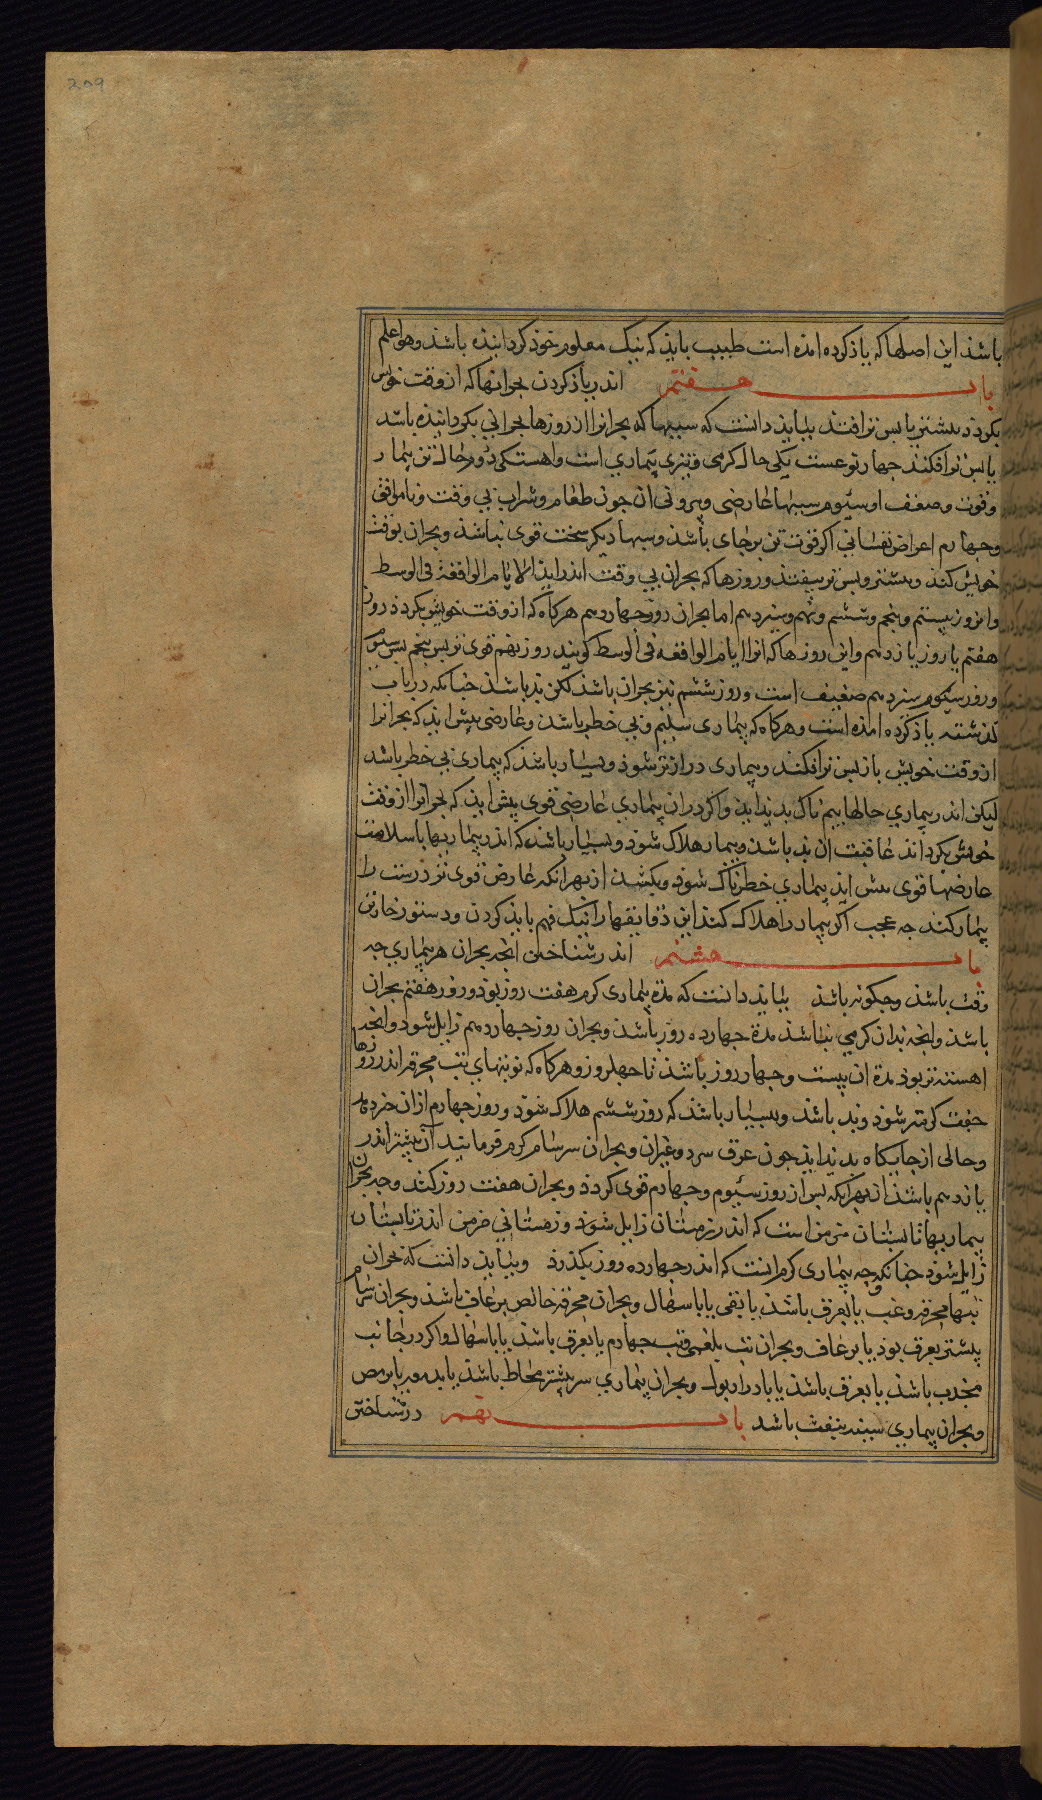 209
باشد این اصلها که یاذ کرده امذه است طبیب بایذ که نیک معلوم خوذ کردانیذه باشد وهو اعلم
باب هفتم اندر یاذ کردن بحرانها که از وقت خویش
بکردد بیشتر یا بس تر افتد ببایذ دانست که سببها که بحرانرا از روزها بحرانی بکردانیذه باشد
یا بس تر افکند جهار نوعست یکی حال کرمی وتیزی بیماری است واهستکی دوم حال تن بیمار
وقوت وضعف او سیوم سببها عارضی وبیرونی ان جون طعام وشراب بی وقت ونا موافق
وجهارم اعراض نفسانی اکر قوت تن بر جای باشد وسببها دیکر سخت قوی نباشد وبحران بوقت
خویش کند وبیشتر وبس تر بیفتد وروزها که بحران بی وقت اندر ایذ الایام الواقعة فی الوسط
وان روز بیستم وبنجم وششم ونهم وسیزدهم اما بحران روز جهاردهم هرکاه که از وقت خویش بکردد روز
هفتم یا روز یازدهم واین روزها که انرا ایام الواقعه فی الوسط کویند روز نهم قوی تر بس بنجم بس سیوم
وروز سیوم سیزدهم ضعیف است وروز ششم نیز بحران باشد لکن بد باشد جنانکه در باب
کذشته یاذ کرده امذه است وهرکاه که بیماری سلیم وبی خطر باشد وعارضی بیش ایذ که بحرانرا
از وقت خویش باز بس تر افکند وبیماری دراز تر شوذ وبسیار باشد که بیماری بی خطر باشد
لیکن اندر بیماری حالها بیم ناک بدید ایذ واکر در ان بیماری عارضی قوی بیش ایذ که بحرانرا از وقت
خویش بکرداند عاقبت ان بد باشد وبیمار هلاک شوذ وبسیار باشد که اندر بیماریها با سلامت
عارضها قوی بیش ایذ بیماری خطرناک شوذ وبکشد از بهر انکه عارض قوی تن درست را
بیمار کند جه عجب اکر بیمار را هلاک کند این دقایقها را نیک فهم بایذ کردن ودستور خاوتن
باب هشتم اندر شناختن انجه بحران هر بیماری جه
وقت باشد وجکونه باشد ببایذ دانست که مدة بیماری کرم هفت روز بوذ وروز هفتم بحران
باشد وانجه بدان کرمی نباشد مدة جهارده روز باشد وبحران روز جهاردهم زایل شوذ وانجه
اهسته تر بوذ مدة ان بیست وجهار روز باشد تا جهل روز وهرکاه که نوبتهای تب محرقه اندر روزها
جفت کرمتر شوذ وبد باشد وبسیار باشد که روز ششم هلاک شوذ وروز جهارم از ان خبر دهد
وحالی از جایکاه بدید ایذ جون عرق سرد وغیر ان وبحران سرسام کرم قرمانیذ ان بیشتر اندر
یازدهم باشد از بهر انکه بس از روز سیوم وجهارم قوی کردد وبحران هفت روز کند وجه بحران
بیماریها تابستان مزمن است که اندر زمستان زایل شوذ وزمستانی مزمن اندر تابستان
زایل شوذ جنانکه جه بیماری کرم انست که اندر جهارده روز بکذرد وببایذ دانست که بحران
تبها محرقه وغب یا بعرق باشد یا بقی یا باسهال وبحران محرقه خالص برعاف باشد وبحران سرسام
بیشتر بعرق بوذ یا برعاف وبحران تب بلغمی وتب جهارم یا بعرق باشد یا باسهال واکر در جانب
محدب باشد یا بعرق باشد یا بادرار بول وبحران بیماری سر بیشتر بمخاط باشد یا بدمع یا برمص
وبحران بیماری سینه بنفث باشد باب نهم در شناختن